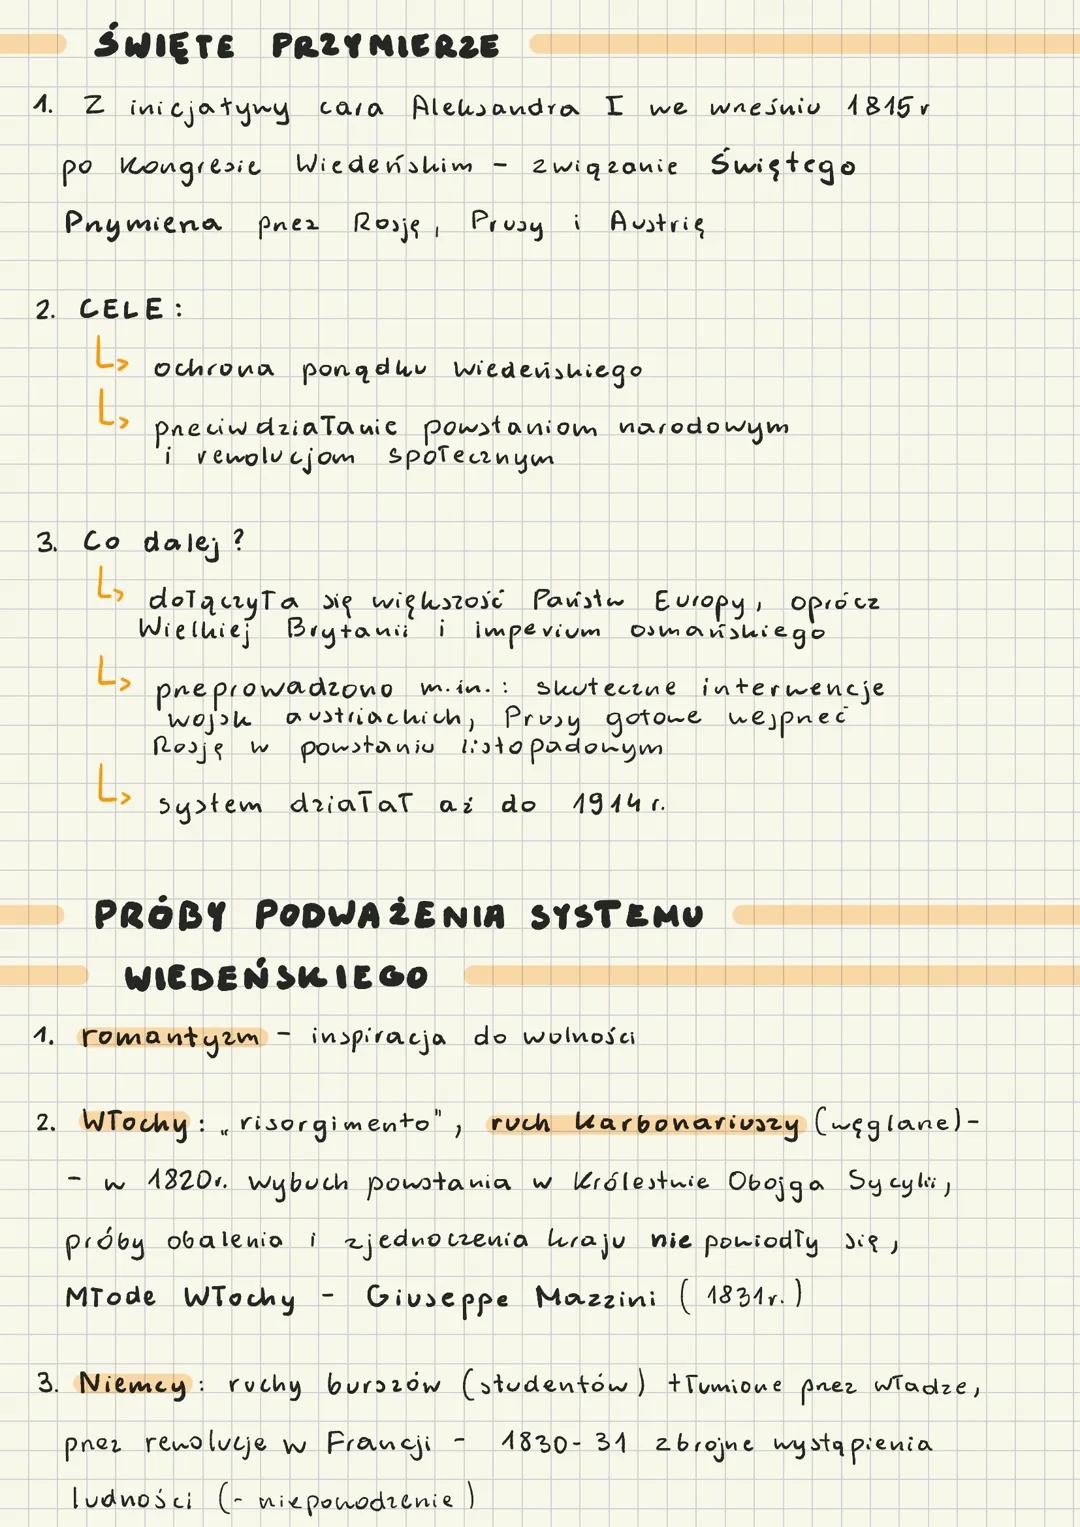 ŚWIĘTE PRZYMIERZE
1. Z inicjatywy cara Aleksandra I we wrześniu 1815 r
po Kongresie Wiedeńskim - związanie Świętego
Przymierza przez Rosję, Prusy i Austrię
2. CELE:
↳ ochrona porządku wiedeńskiego
↳ przeciwdziałanie powstaniom narodowym
i rewolucjom społecznym
3. Co dalej?
↳ dołączyła się większość Państw Europy, oprócz
Wielkiej Brytanii i imperium osmańskiego
↳ przeprowadzono m.in.: skuteczne interwencje
wojsk austriackich, Prusy gotowe wesprzeć
Rosję w powstaniu listopadowym
↳ system działał aż do 1914 r.
PRÓBY PODWAŻENIA SYSTEMU
WIEDEŃSKIEGO
1. romantyzm - inspiracja do wolności
2. Włochy: „risorgimento", ruch karbonariuszy (węglarze)-
- w 1820r. wybuch powstania w Królestwie Obojga Sycylii,
próby obalenia i zjednoczenia kraju nie powiodły się,
Młode Włochy - Giuseppe Mazzini (1831r.)
3. Niemcy: ruchy burszów (studentów) tłumione przez władze,
przez rewolucje w Francji - 1830-31 zbrojne wystąpienia
ludności (- niepowodzenie)